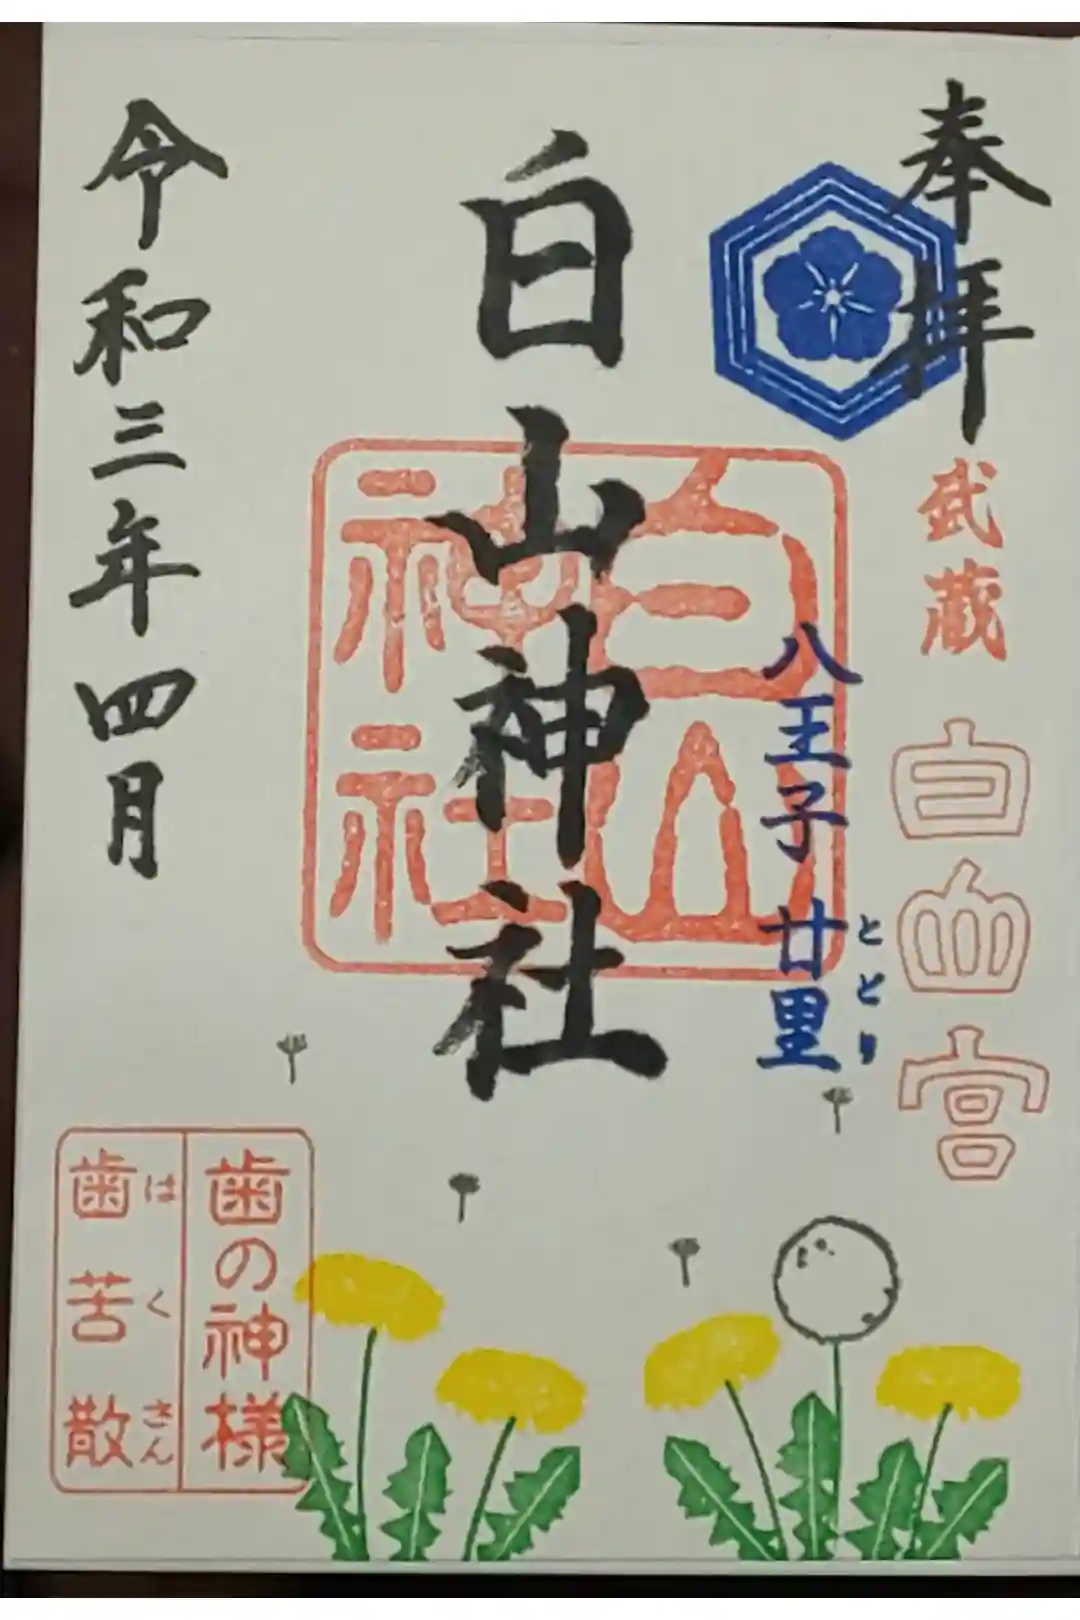 奉拝
武蔵
白山宮
八王子 廿里
ととり
白山神社
白山神社
令和三年四月
歯の神様
歯苦散
はくさん